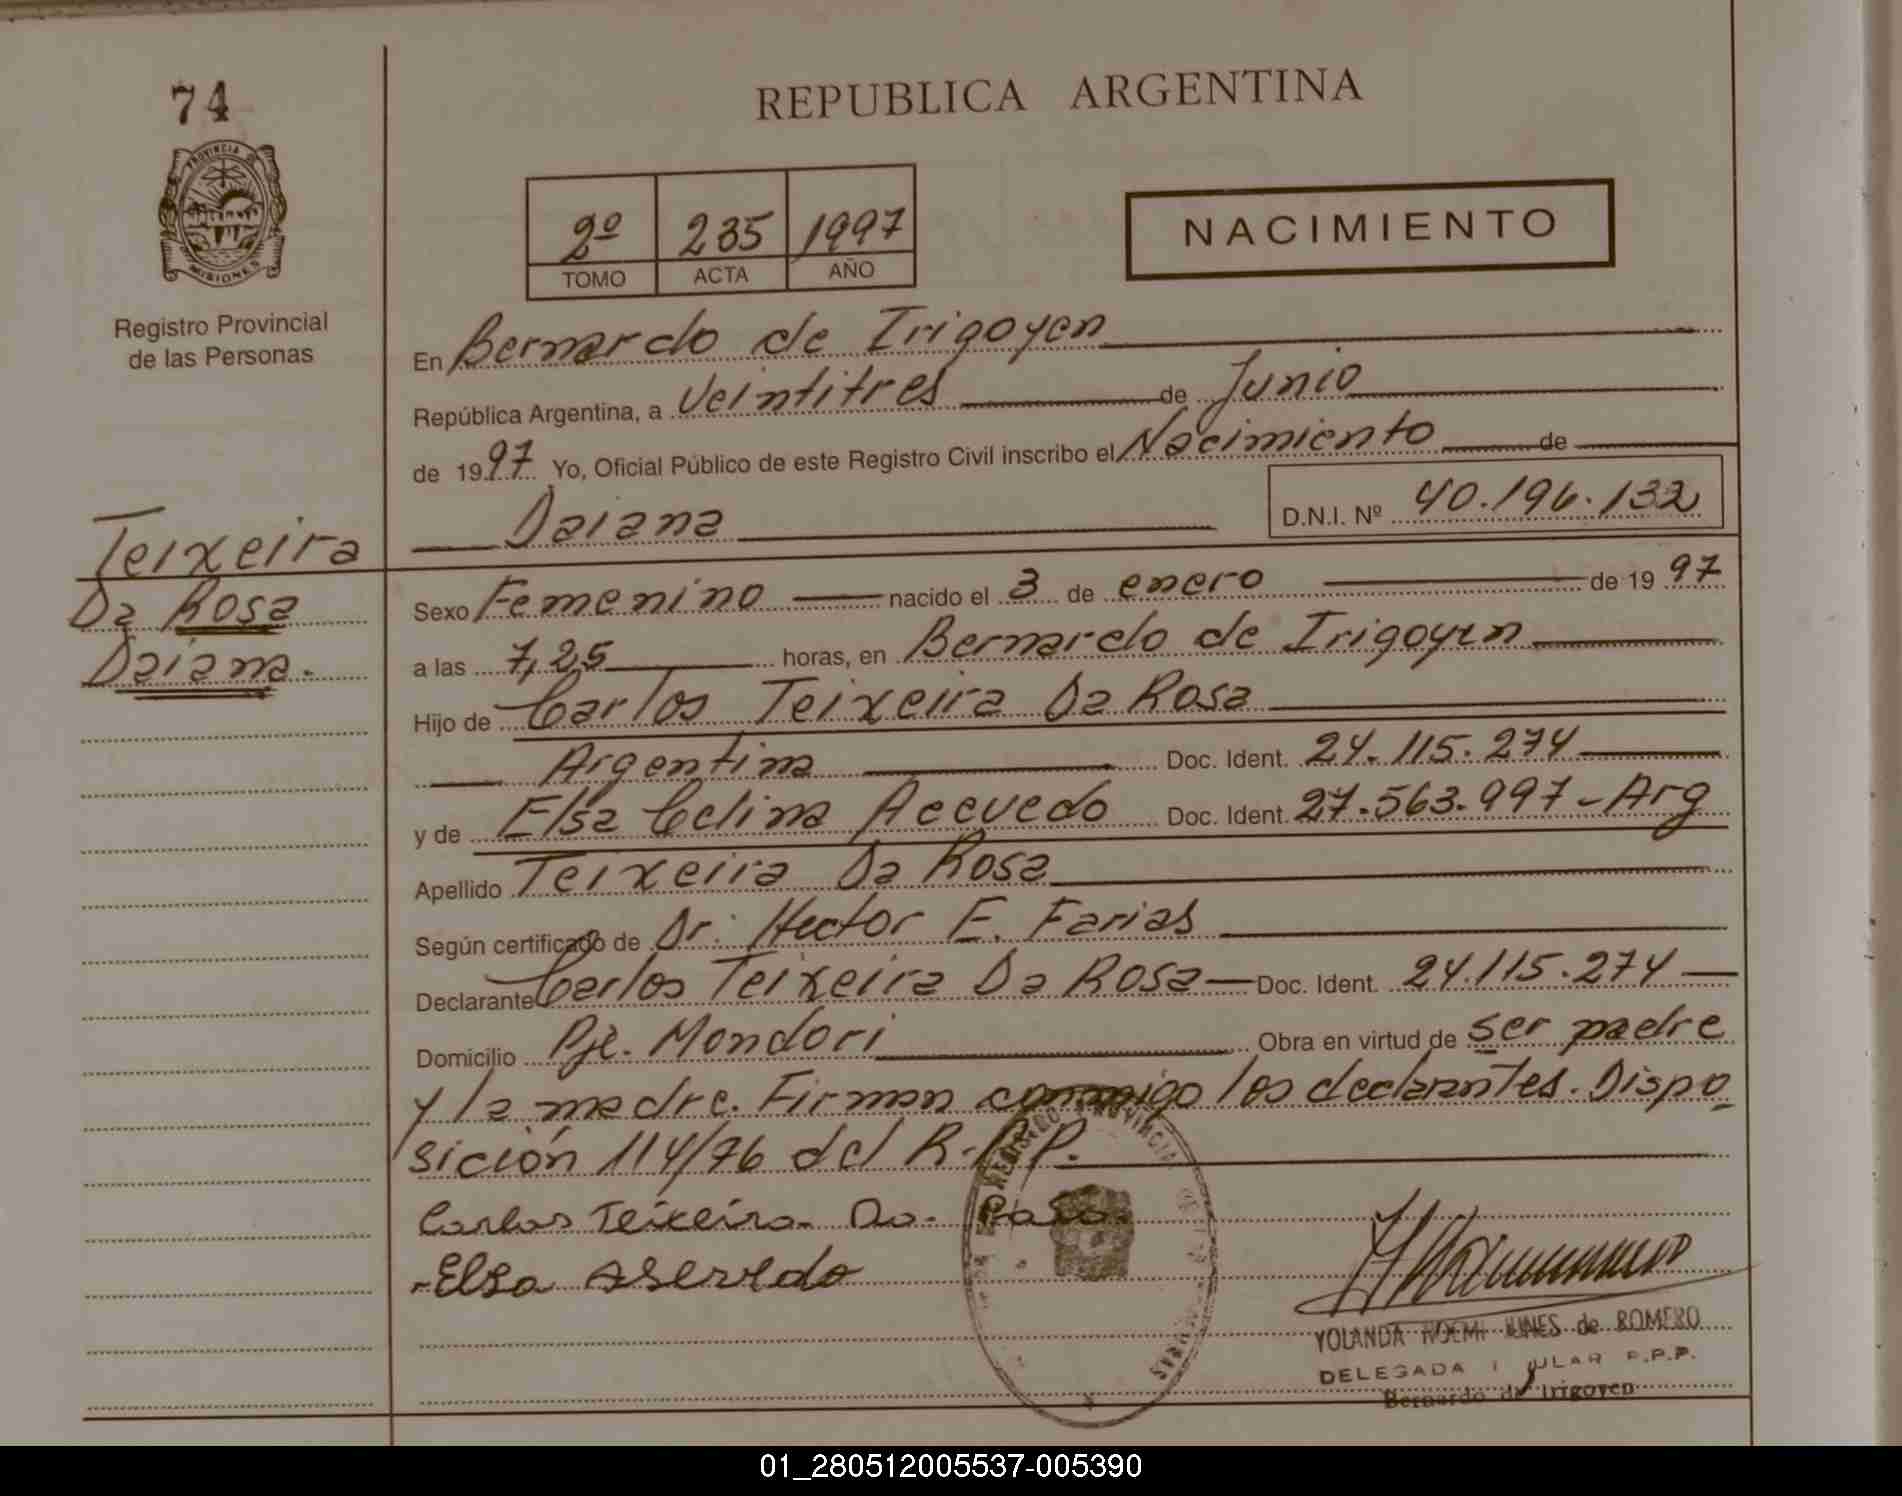 74
REPUBLICA ARGENTINA
PROVINCIA DE
MISIONES
Registro Provincial
de las Personas
2º 235 1997
TOMO ACTA AÑO
NACIMIENTO
En Bernardo de Irigoyen
República Argentina, a Veintitres de Junio
de 1997 Yo, Oficial Público de este Registro Civil inscribo el Nacimiento de
Daiana D.N.I. Nº 40.196.132
Teixeira
Da Rosa
Daiana.
Sexo Femenino nacido el 3 de enero de 1997
a las 7,25 horas, en Bernardo de Irigoyen
Hijo de Carlos Teixeira Da Rosa
Argentina Doc. Ident. 24.115.274
y de Elsa Celina Acevedo Doc. Ident. 27.563.997-Arg
Apellido Teixeira Da Rosa
Según certificado de Dr. Hector E. Farias
Declarante Carlos Teixeira Da Rosa Doc. Ident. 24.115.274
Domicilio Pje. Mondori Obra en virtud de ser padre
y la madre. Firman conmigo los declarantes. Dispo
sición 114/76 del R.P.P.
Carlos Teixeira Da Rosa
Elsa Asevedo
REGISTRO PROVINCIAL DE LAS
YOLANDA NOEMI de ROMERO
DELEGADA R.P.P.
Bernardo de Irigoyen
01_280512005537-005390